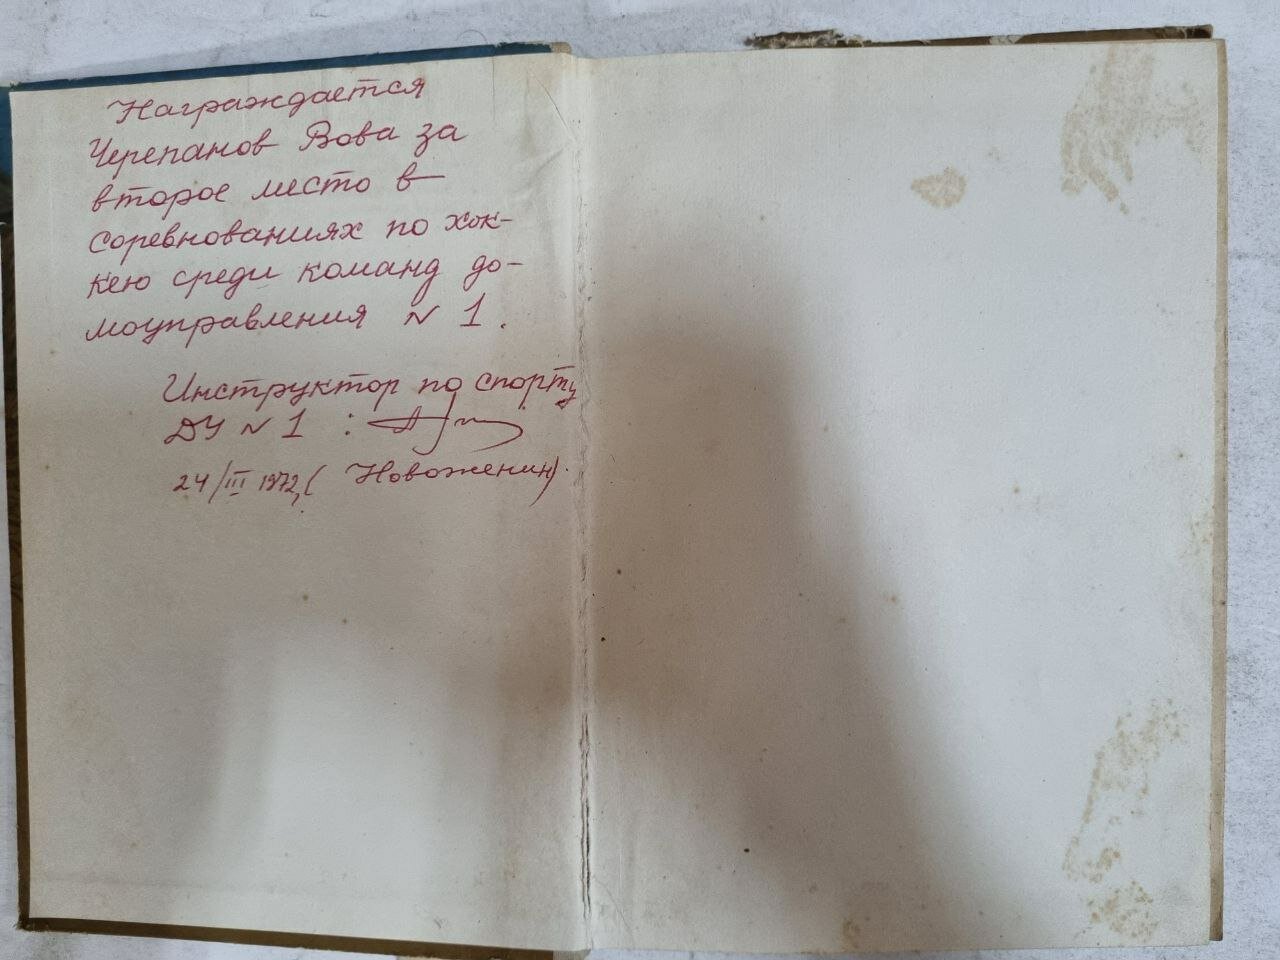 Награждается
Черепанов Вова за
второе место в
соревнованиях по хок-
кею среди команд до-
моуправления N 1.
Инструктор по спорту
ДУ N 1 :
24/III 1972, ( Новоженин).